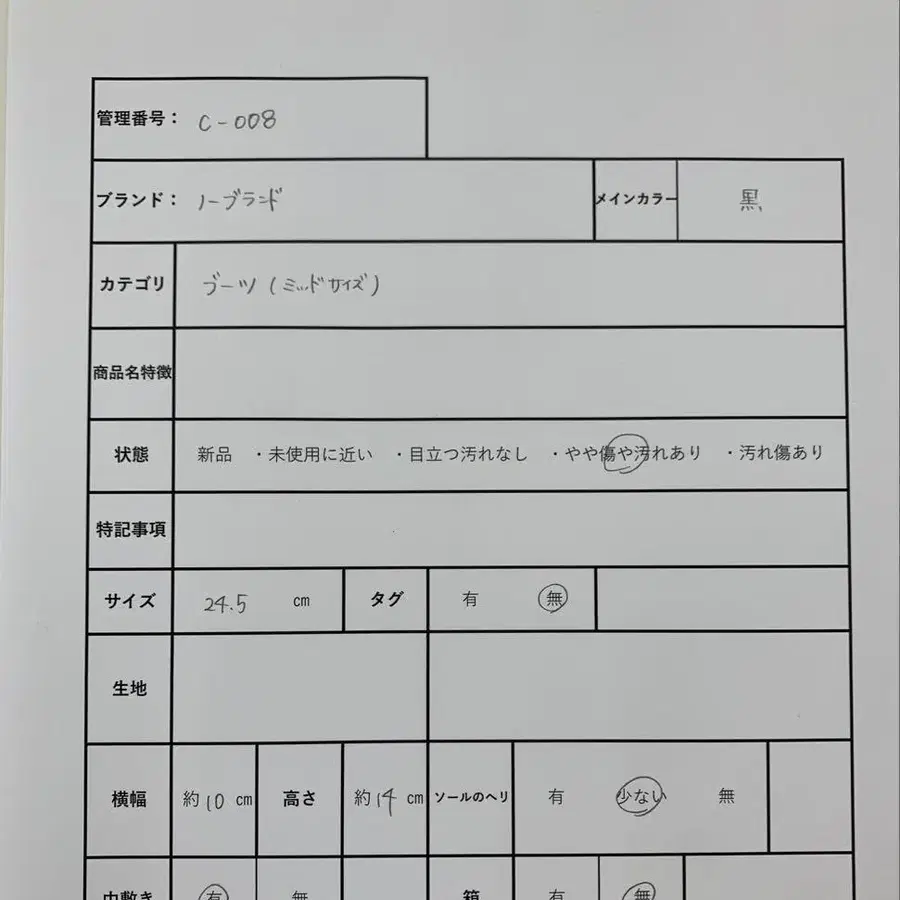 管理番号： C-008
ブランド： ノーブランド メインカラー 黒
カテゴリ ブーツ(ミッドサイズ)
商品名特徴
状態 新品 ・未使用に近い ・目立つ汚れなし ・やや傷や汚れあり ・汚れ傷あり
特記事項
サイズ 24.5 cm タグ 有 無
生地
横幅 約10 cm 高さ 約14 cm ソールのヘリ 有 少ない 無
中敷き 有 無 箱 有 無